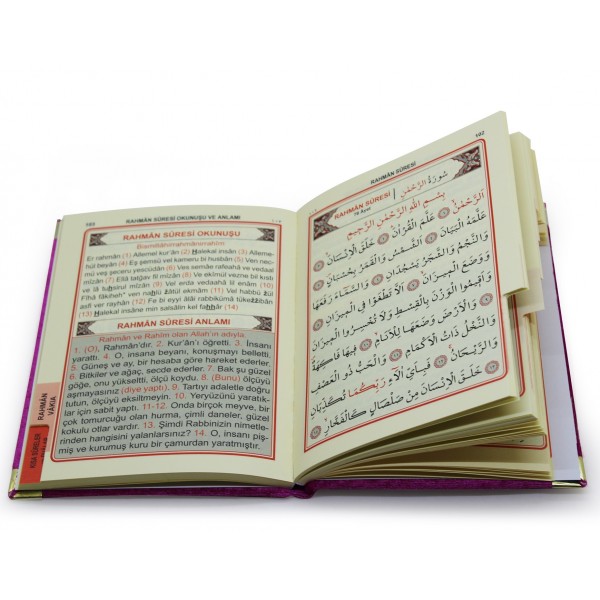 RAHMÂN SÛRESİ OKUNUŞU VE ANLAMI
RAHMÂN SÛRESİ OKUNUŞU
Bismillâhirrahmânirrahîm
Er rahmân (1) Allemel kur'ân (2) Halekal insân (3) Alleme-
hül beyân (4) Eş şemsü vel kameru bi husbân (5) Ven nec-
mü veş şeceru yescüdân (6) Ves semâe rafeahâ ve vedaal
mîzân (7) Ellâ tatğav fil mîzân (8) Ve ekîmül vezne bil kısti
ve lâ tuhsirul mîzân (9) Vel erda vedaahâ lil enâm (10)
Fîhâ fâkiheh* ven nahlü zâtül ekmâm (11) Vel habbü zül
asfi ver rayhân (12) Fe bi eyyi âlâi rabbikümâ tükezzibân
(13) Halekal insâne min salsâlin kel fahhâr (14)
RAHMÂN SÛRESİ ANLAMI
Rahmân ve Rahîm olan Allah'ın adıyla.
1. (O), Rahmân'dır. 2. Kur'ân'ı öğretti. 3. İnsanı
yarattı. 4. O, insana beyanı, konuşmayı belletti.
5. Güneş ve ay, bir hesaba göre hareket ederler.
6. Bitkiler ve ağaç, secde ederler. 7. Bak şu güzel
göğe, onu yükseltti, ölçü koydu. 8. (Bunu) ölçüyü
aşmayasınız (diye yaptı). 9. Tartıyı adaletle doğru
tutun, ölçüyü eksiltmeyin. 10. Yeryüzünü yaratık-
lar için sabit yaptı. 11-12. Onda birçok meyve, bir
çok tomurcuğu olan hurma, çimli daneler, güzel
kokulu otlar vardır. 13. Şimdi Rabbinizin nimetle-
rinden hangisini yalanlarsınız? 14. O, insanı piş-
miş ve kurumuş kuru bir çamurdan yaratmıştır.
RAHMÂN
VÂKIA
KISA SÛRELER
102
RAHMÂN SÛRESİ
RAHMÂN SÛRESİ
سُورَةُ الرَّحْمٰنِ
بِسْمِ اللّٰهِ الرَّحْمٰنِ الرَّحِيمِ
اَلرَّحْمٰنُ ۙ عَلَّمَ الْقُرْاٰنَ ۜ خَلَقَ الْاِنْسَانَ ۙ
عَلَّمَهُ الْبَيَانَ اَلشَّمْسُ وَالْقَمَرُ بِحُسْبَانٍ ۙ
وَالنَّجْمُ وَالشَّجَرُ يَسْجُدَانِ وَالسَّمَٓاءَ رَفَعَهَا
وَوَضَعَ الْمِيزَانَ ۙ اَلَّا تَطْغَوْا فِي الْمِيزَانِ
وَاَقِيمُوا الْوَزْنَ بِالْقِسْطِ وَلَا تُخْسِرُوا الْمِيزَانَ
وَالْاَرْضَ وَضَعَهَا لِلْاَنَامِ ۙ فِيهَا فَاكِهَةٌ
وَالنَّخْلُ ذَاتُ الْاَكْمَامِ ۖ وَالْحَبُّ ذُو الْعَصْفِ
وَالرَّيْحَانُ ۚ فَبِاَيِّ اٰلَٓاءِ رَبِّكُمَا تُكَذِّبَانِ
خَلَقَ الْاِنْسَانَ مِنْ صَلْصَالٍ كَالْفَخَّارِ ۙ